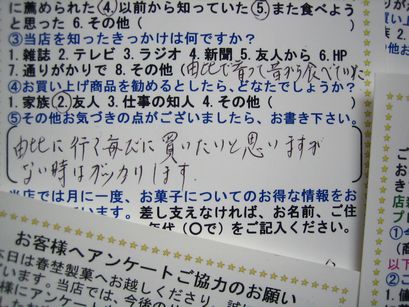 に薦められた ④.以前から切っていた ⑤.また食べよう
と思った 6.その他(
③当店を知ったきっかけは何ですか?
1.雑誌 2.テレビ 3.ラジオ 4.新聞 5.友人から 6.HP
7.通りがかりで 8.その他(由比で育って昔から食べていた
④お買い上げ商品を勧めるとしたら、どなたでしょうか?
1.家族 ②.友人 3.仕事の知人 4.その他(
⑤その他お気づきの点がございましたら、お書き下さい。
由比に行く毎だに買いたいと思いますが
ない時はガッカリします.
当店では月に一度、お菓子についてのお得な情報をお
ています。差し支えなければ、お名前、ご住
年代(○で)をご記入ください。
お客様へアンケートご協力のお願い
本日は春埜製菓へお越しくださり、誠
います。当店では、今後の
様にアンケート